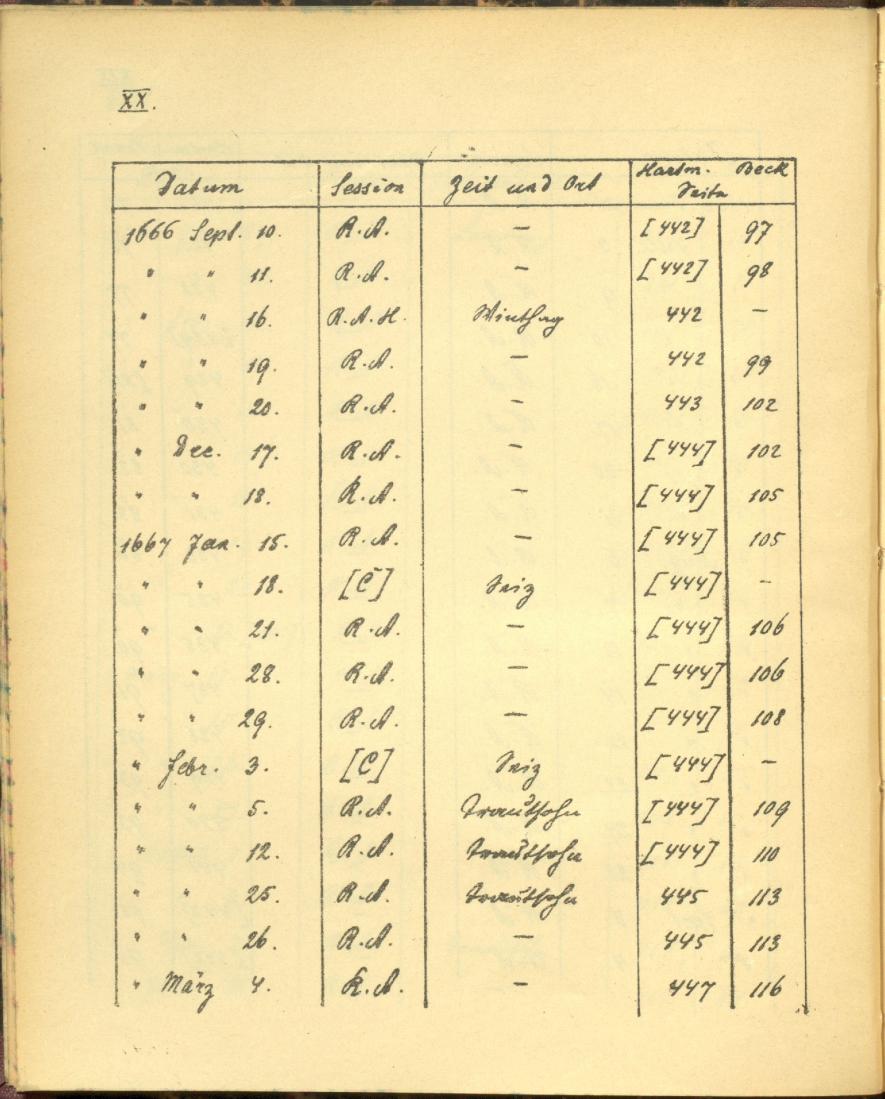 XX.
Datum Session Zeit und Ort Hartm. Beck
Seite
1666 Sept. 10. R.A. — [442] 97
" " 11. R.A. — [442] 98
" " 16. R.A.H. Winthag 442 —
" " 19. R.A. — 442 99
" " 20. R.A. — 443 102
" Dec. 17. R.A. — [444] 102
" " 18. R.A. — [444] 105
1667 Jan. 15. R.A. — [444] 105
" " 18. [C] Seiz [444] —
" " 21. R.A. — [444] 106
" " 28. R.A. — [444] 106
" " 29. R.A. — [444] 108
" Febr. 3. [C] Seiz [444] —
" " 5. R.A. Trautsohn [444] 109
" " 12. R.A. Trautsohn [444] 110
" " 25. R.A. Trautsohn 445 113
" " 26. R.A. — 445 113
" März 4. R.A. — 447 116